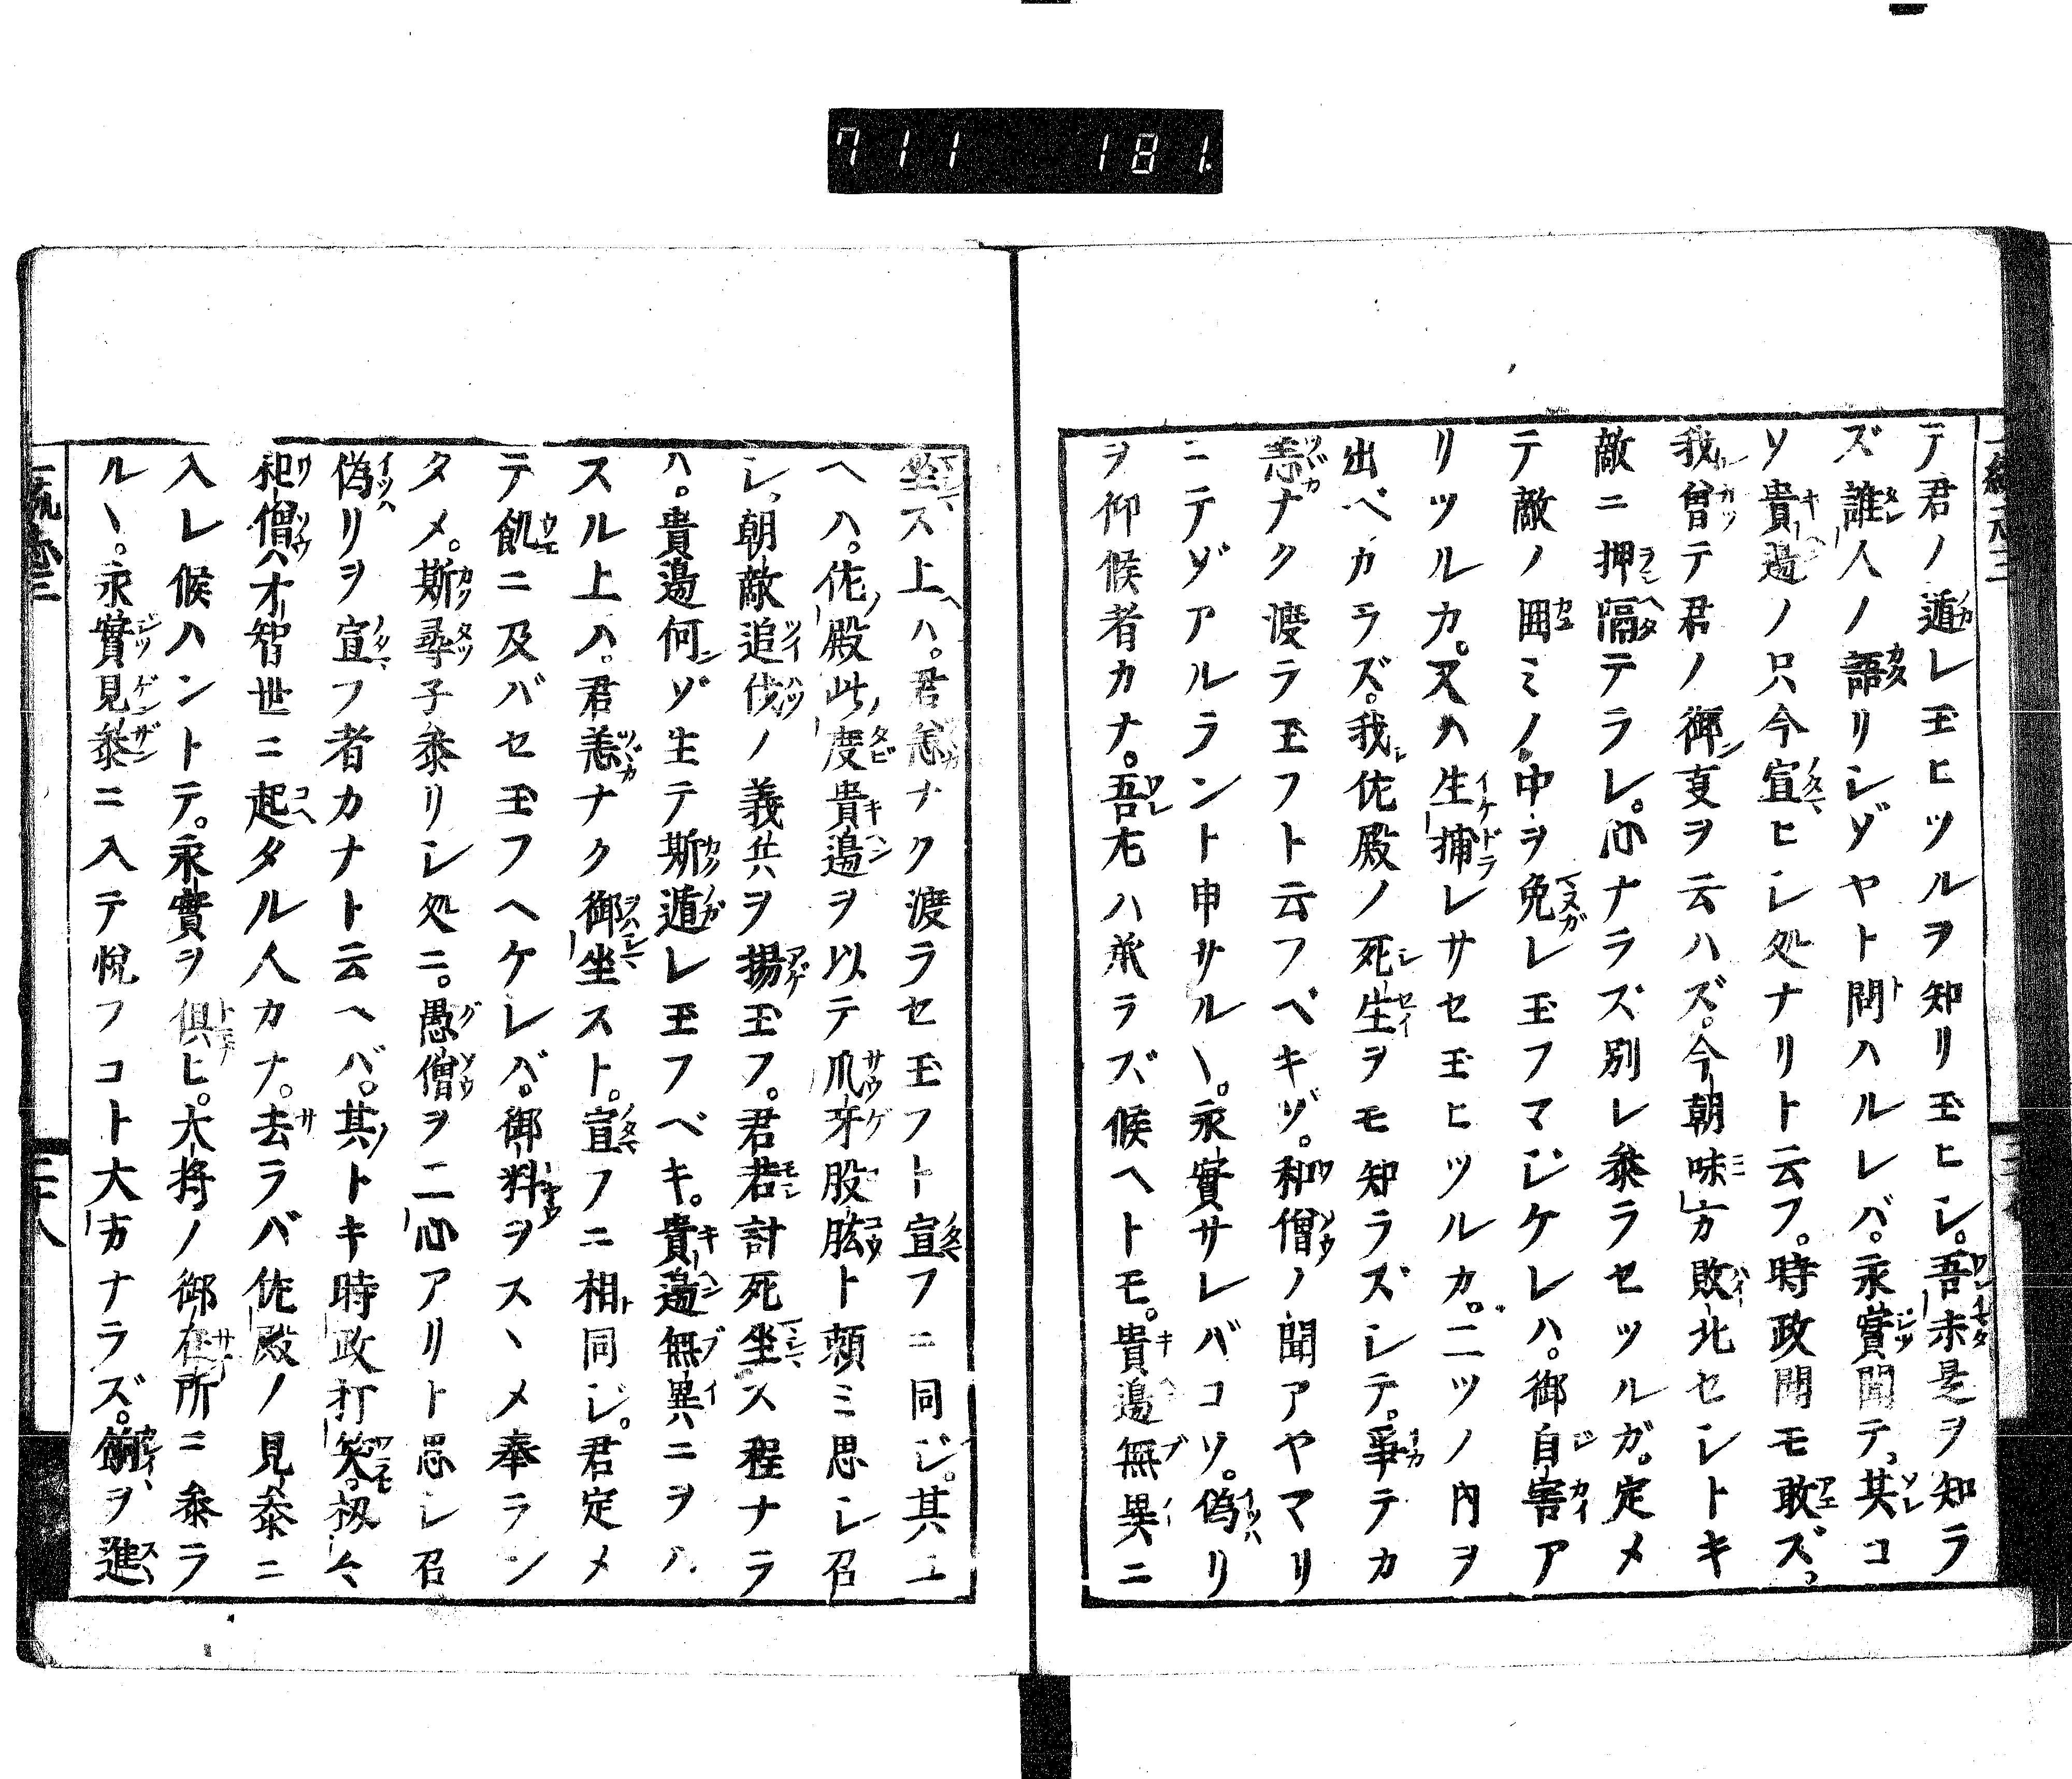 711 181
テ君ノ遁レ玉ヒツルヲ知リ玉ヒシ。吾未是ヲ知ラ
ズ誰人ノ語リシゾヤト問ハルレバ。永實聞テ。其コ
ソ貴邉ノ只今宣ヒシ処ナリト云フ。時政聞モ敢ズ。
我曾テ君ノ御ヿヲ云ハズ。今朝味方敗北セシトキ
敵ニ押隔テラレ。心ナラズ別レ參ラセツルガ。定メ
テ敵ノ囲ミノ。中ヲ免レ玉フマジケレハ。御自害ア
リツルカ。又ハ生捕レサセ玉ヒツルカ。二ツノ内ヲ
出ベカラズ。我佐殿ノ死生ヲモ知ラズシテ。爭テカ
恙ナク渡ラ玉フト云フベキゾ。和僧ノ聞アヤマリ
ニテゾアルラント申サルヽ。永實サレバコソ。偽リ
ヲ仰候者カナ。吾尤ハ承ラズ候ヘトモ。貴邉無異ニ
坐ス上ハ。君恙ナク渡ラセ玉フト宣フニ同ジ。其ユ
ヘハ。佐殿此度貴邉ヲ以テ爪牙股肱ト頼ミ思シ召
シ。朝敵追伐ノ義兵ヲ揚玉フ。君若計死坐ス程ナラ
ハ。貴邉何ゾ生テ斯遁レ玉フベキ。貴邉無異ニヲハ
スル上ハ。君恙ナク御坐スト。宣フニ相同ジ。君定メ
テ飢ニ及バセ玉フヘケレバ。御料ヲスヽメ奉ラン
タメ。斯尋子參リシ処ニ。愚僧ヲ二心アリト思シ召
偽リヲ宣フ者カナト云ヘバ。其トキ時政打笑。扨々
和僧ハ才智世ニ起タル人カナ。去ラバ佐殿ノ見參ニ
入レ候ハントテ。永實ヲ倶ヒ。大將ノ御在所ニ參ラ
ルヽ。永實見參ニ入テ悦フコト大方ナラズ。餉ヲ進